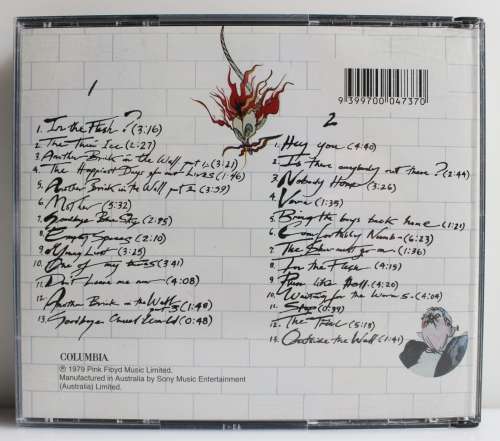 1
1. In the Flesh? (3:16)
2. The Thin Ice (2:27)
3. Another Brick in the Wall part 1 (3:21)
4. The Happiest Days of our Lives (1:46)
5. Another Brick in the Wall part 2 (3:59)
6. Mother (5:32)
7. Goodbye Blue Sky (2:45)
8. Empty Spaces (2:10)
9. Young Lust (3:25)
10. One of my turns (3:41)
11. Don't Leave me now (4:08)
12. Another Brick in the Wall part 3 (1:48)
13. Goodbye Cruel World (0:48)
COLUMBIA
℗ 1979 Pink Floyd Music Limited.
Manufactured in Australia by Sony Music Entertainment
(Australia) Limited.
9 399700 047370
2
1. Hey you (4:40)
2. Is there anybody out there? (2:44)
3. Nobody Home (3:26)
4. Vera (1:35)
5. Bring the boys back home (1:21)
6. Comfortably Numb (6:23)
7. The Show must go on (1:36)
8. In the Flesh (4:15)
9. Run like Hell (4:20)
10. Waiting for the Worms (4:04)
11. Stop (0:39)
12. The Trial (5:13)
13. Outside the Wall (1:41)